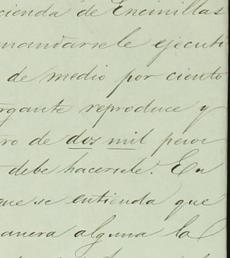 cienda de Encinillas
de medio por ciento
rgante reproduce y
ro de dos mil pesos
debe hacersele. En
que se entienda que
anera alguna la